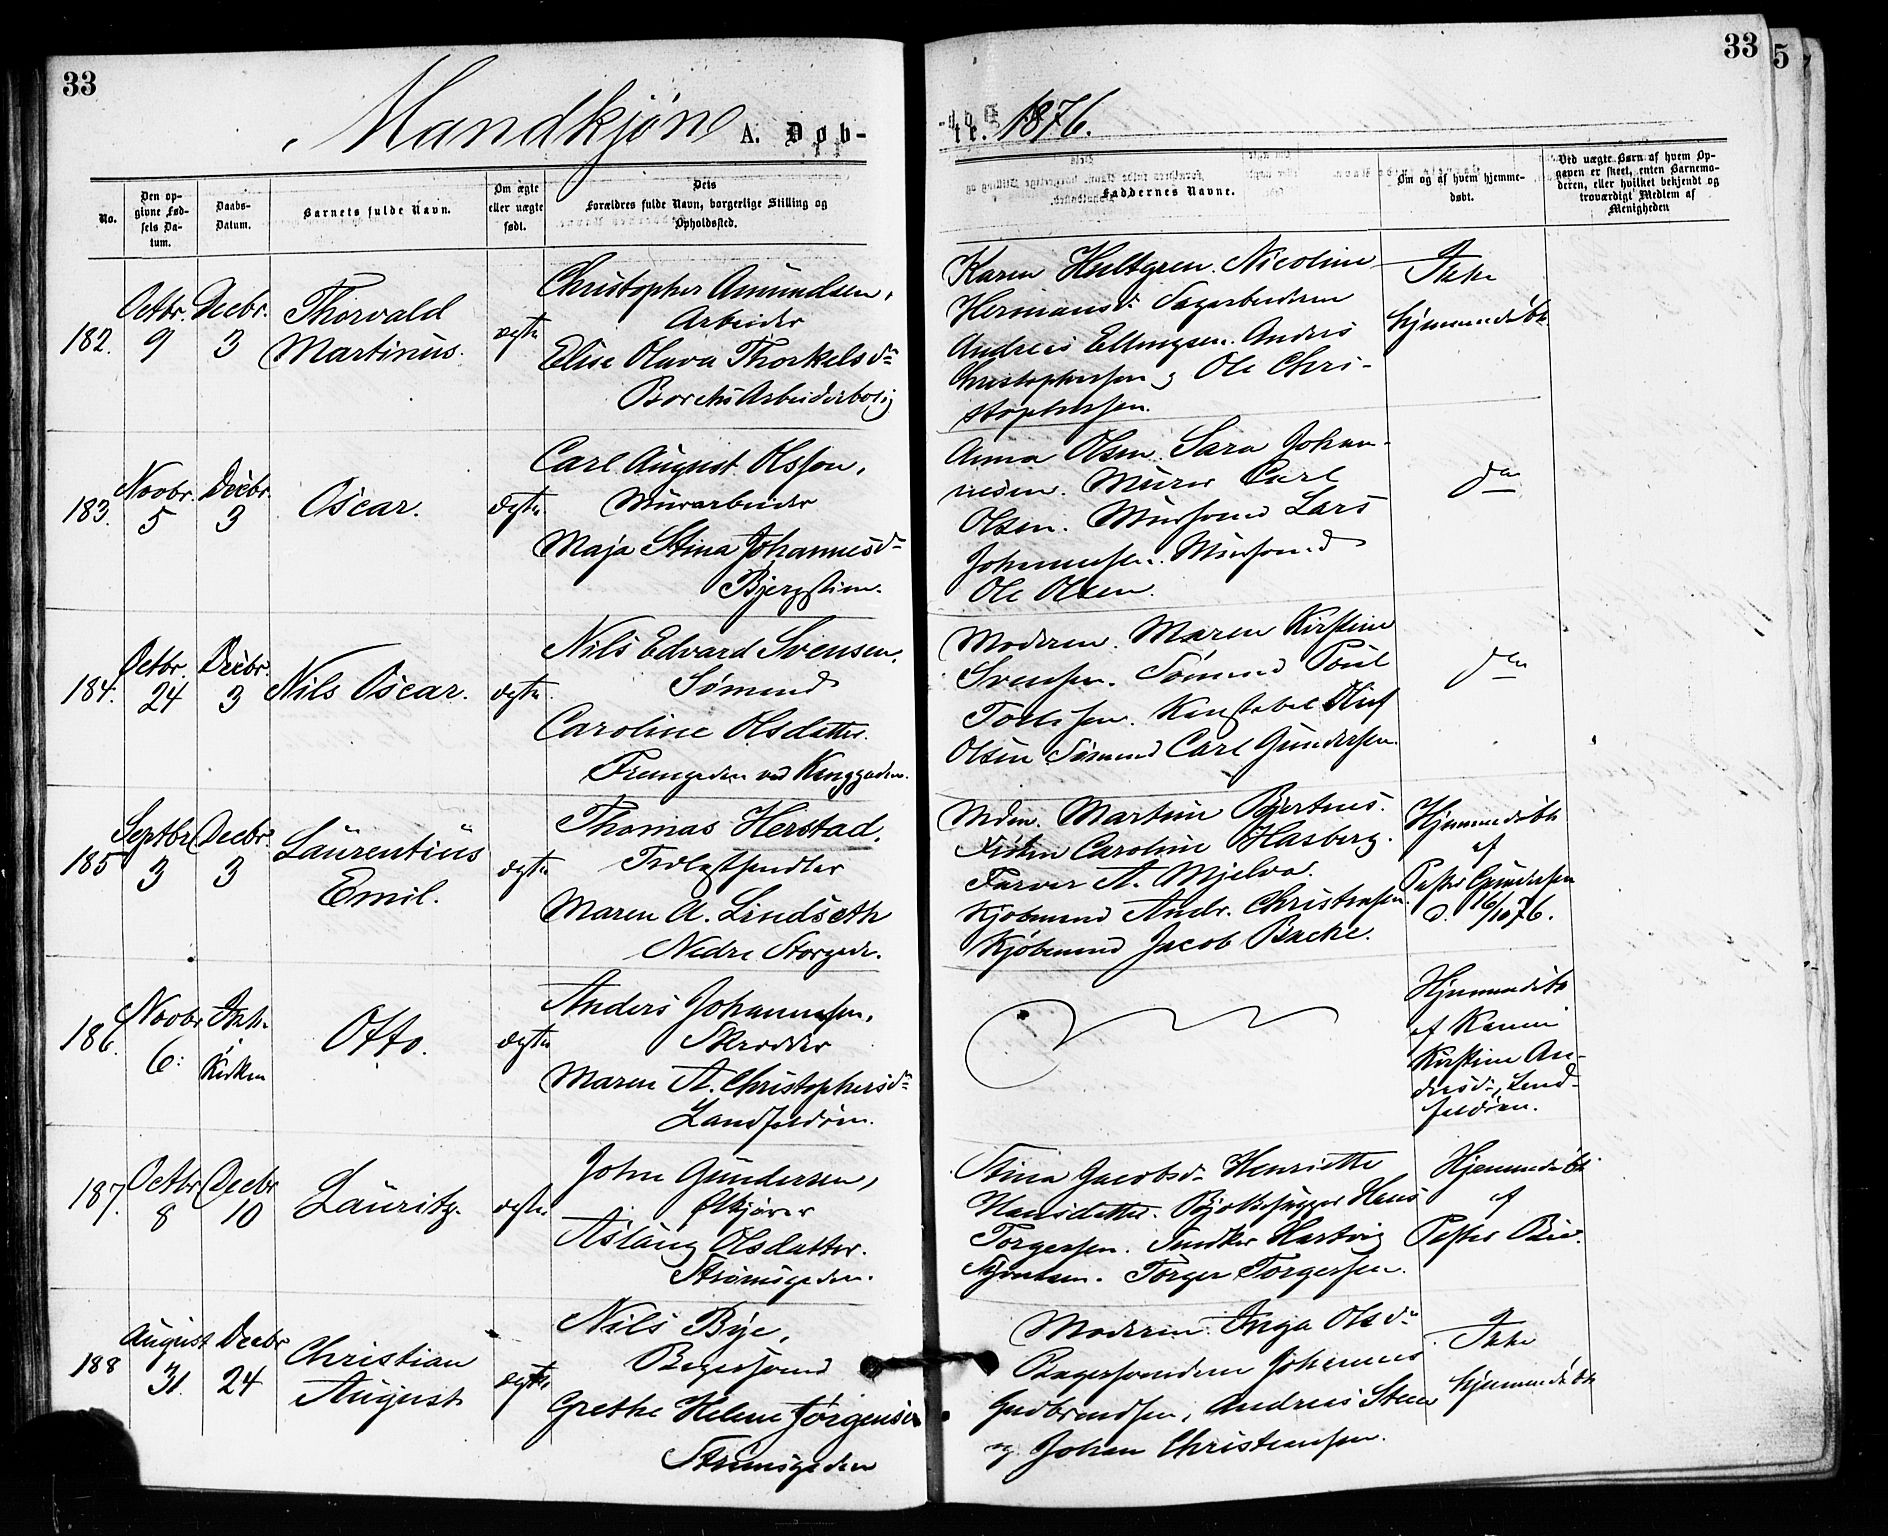 33
Mandkjøn A. Døb-
te. 1876.
33
5
No.
Den opgivne Fødsels Datum.
Daabs-Datum.
Barnets fulde Navn.
Om ægte eller uægte født.
Dets Forældres fulde Navn, borgerlige Stilling og Opholdssted.
Faddernes Navne.
Om og af hvem hjemmedøbt.
Ved uægte Børn af hvem Opgaven er skeet, enten Barnemoderen, eller hvilket bekjendt og troværdigt Medlem af Menigheden
182. Octbr. 9 Decbr. 3
Thorvald
Martinus.
ægte
Christopher Amundsen,
Arbeider
Elise Olava Thorkelsdr
Borchs Arbeiderbolig
Karen Hultgren. Nicoline
Hermansdr Sagarbeiderne
Andreas Ellingsen. Anders
Christophersen og Ole Chri-
stophersen.
Ikke
hjemmedøbt.
183. Novbr. 5 Decbr. 3
Oscar.
ægte
Carl August Olsson,
Murarbeider
Maja Stina Johannesdr
Bjergstien.
Anna Olsen. Sara Johan-
nesen. Murer Carl
Olsen. Mursvend Lars
Johannessen. Mursvend
Ole Olsen.
do
184. Octbr. 24 Decbr. 3
Nils Oscar.
ægte
Nils Edvard Svensen,
Sømand
Caroline Olsdatter.
Moderen. Maren Kirstine
Svensen. Sømand Poul
Konstabel Oluf
Olsen Sømand Carl Gundersen.
do
185 Septbr. 3 Decbr. 3
Laurentius
Emil.
ægte
Thomas Herstad,
Maren A. Lindseth
Nedre Storgade.
Mdm. Martine Bjertnes.
Frøken Caroline Hasberg.
Farver A. Mjelva.
Kjøbmand Andr. Christensen.
Kjøbmand Jacob Backe.
Hjemmedøbt
af
Pastor Gundersen
d. 16/10 76.
186. Novbr. 6. Ikke i Kirken
Otto.
ægte
Anders Johannesen,
Skrædder
Maren A. Christophersdr
Landfaldøen.
Hjemmedøbt
af Karen
Kirstine An-
dersdr, Land-
faldøen.
187. Octbr 8 Decbr 10
Lauritz.
ægte
John Gundersen,
Ølkjører
Aslaug Olsdatter.
Strømsgaden.
Stina Jacobsdr Henriette
Hansdatter. Hans
Torgersen. Snedker Hartvig
Torger Torgersen.
Hjemmedøbt
af
Pastor
188 August 31. Decbr 24
Christian
August
ægte
Nils Bye,
Bagersvend
Grethe Helene Jørgensen
Strømsgaden
Moderen. Inga Olsdr
Bagersvendene Johannes
Gudbrandsen, Andreas Steen
og Johan Christiansen.
Ikke
hjemmedøbt